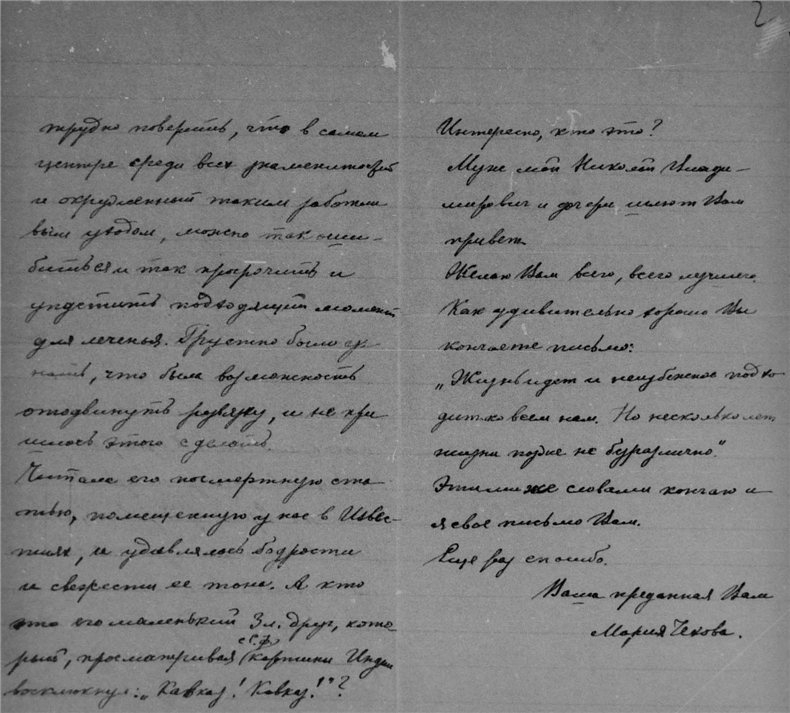 2
трудно поверить, что в самом
центре среди всех знаменитостей
и окруженный таким заботли
вым уходом, можно так оши-
биться и так пророчить и
упустить подходящий момент
для леченья. Грустно было уз
нать, что была возможность
отодвинуть развязку, и не при
шлось этого сделать.
Читала его посмертную ста
тью, помещенную у нас в Извес-
тиях, и удивлялась бодрости
и свежести ее тона. А кто
это его маленький 3х л. друг, кото
рый, просматривая картинки Индии
воскликнул: „Кавказ! Кавказ!"?
Интересно, кто это?
Муж мой Николай Влади-
мирович и дочери шлют Вам
привет.
Желаю Вам всего, всего лучшего.
Как удивительно хорошо Вы
кончаете письмо:
„Жизнь идет и неизбежное подхо
дит ко всем нам. Но несколько лет
жизни позже не безразлично".
Этими же словами кончаю и
я свое письмо Вам.
Еще раз спасибо.
Ваша преданная Вам
Мария Чехова.